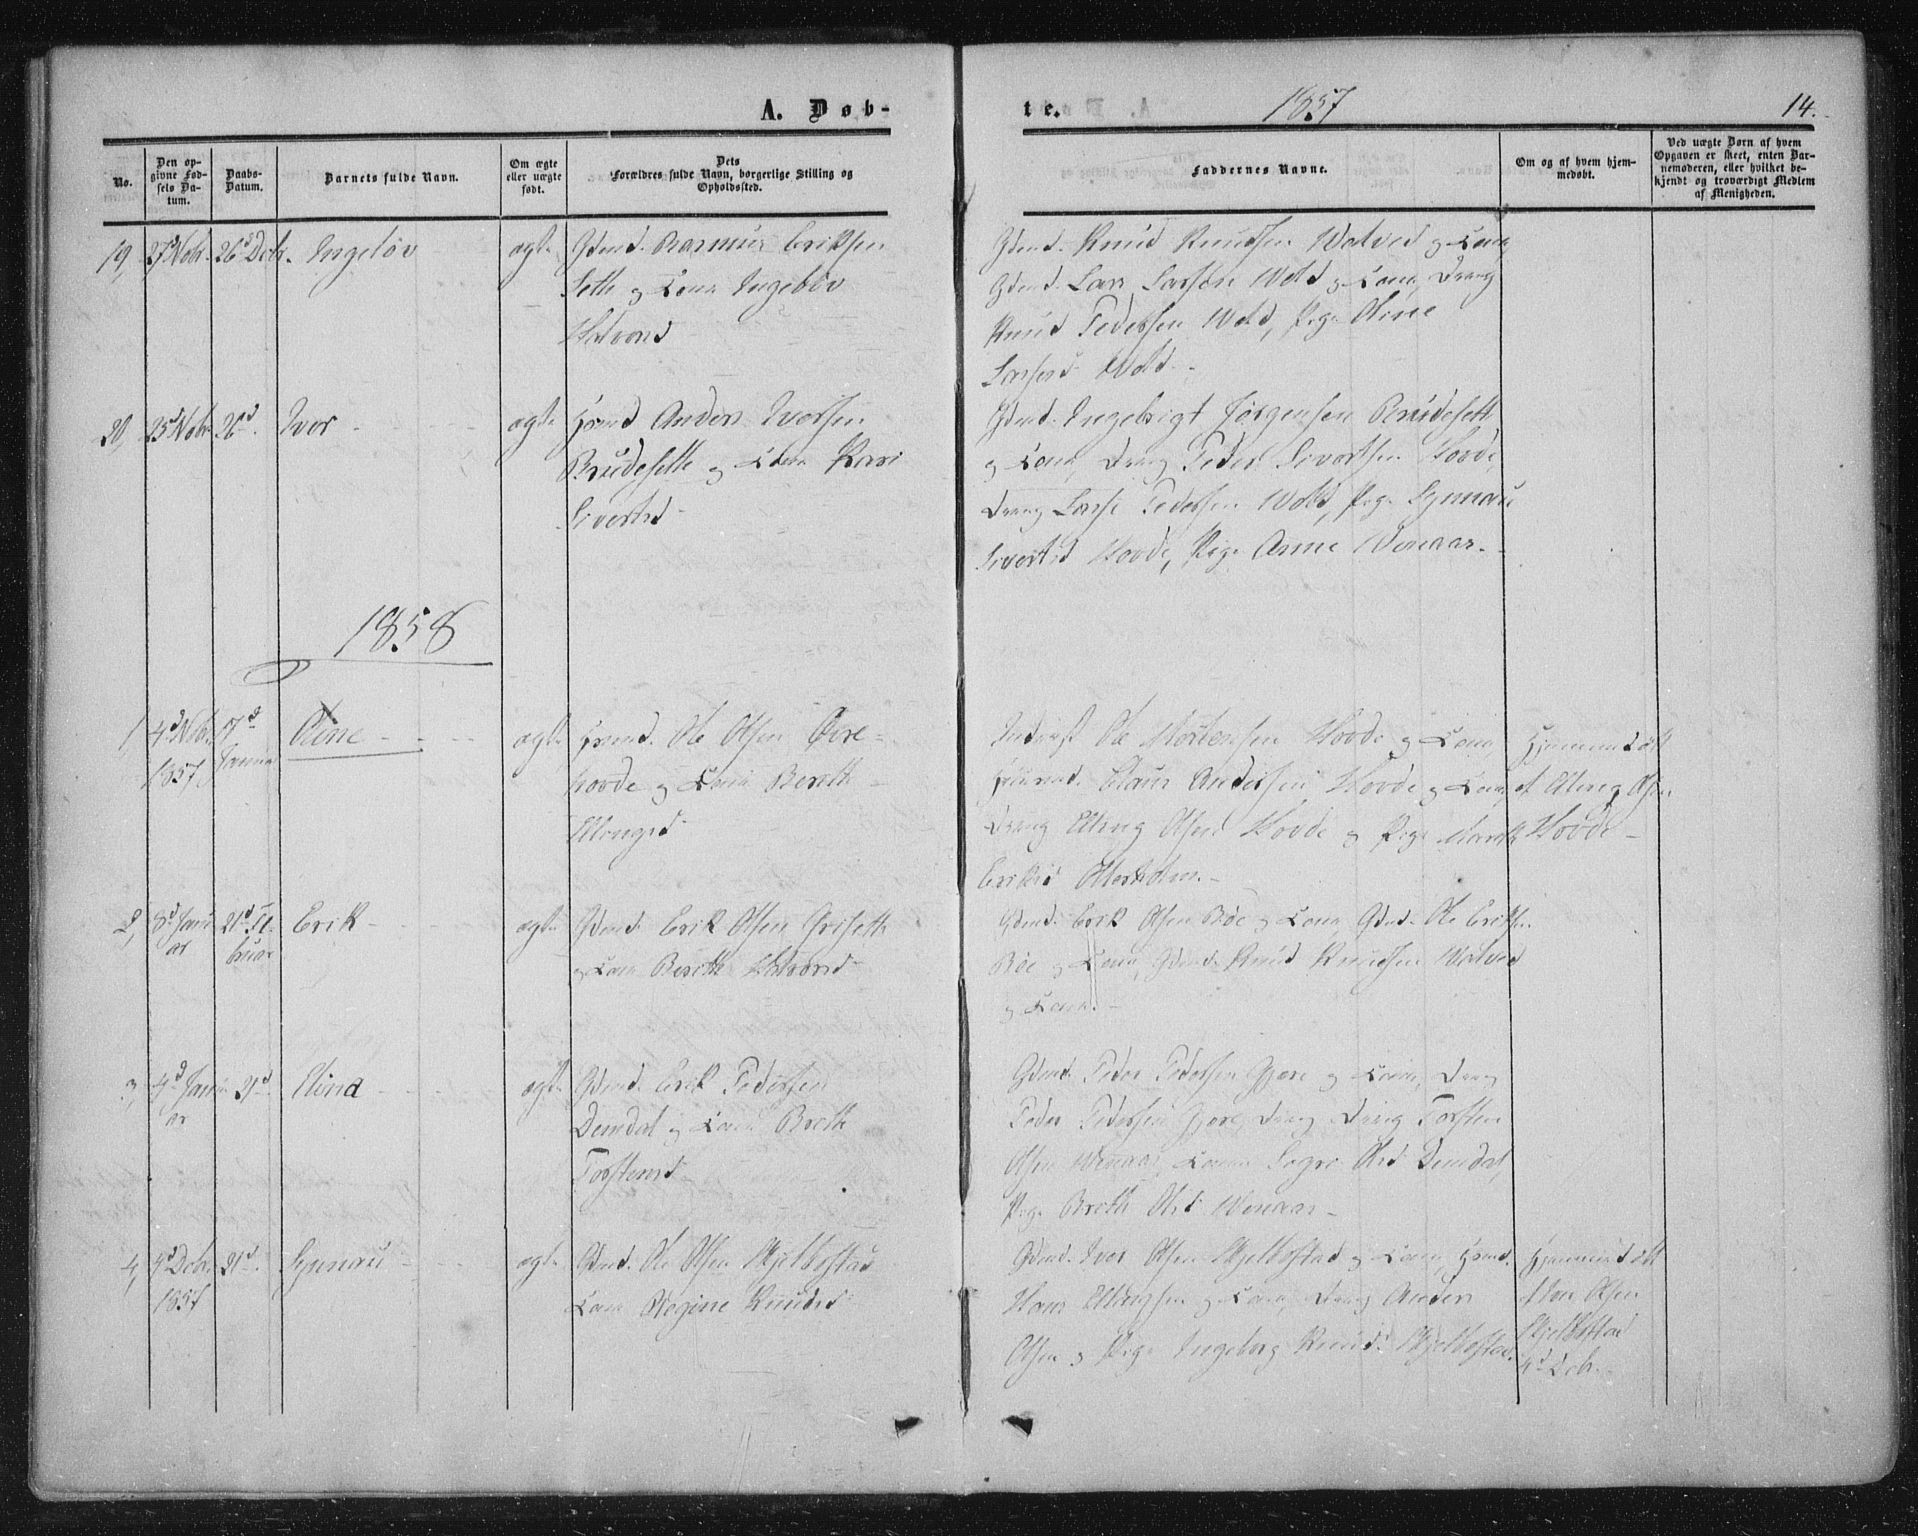 A. Døb-
te.
1857
14.
No.
Den op-
givne Fød-
sels Da-
tum.
Daabs-
Datum.
Barnets fulde Navn.
Om ægte
eller uægte
født.
Dets
Forældres fulde Navn, borgerlige Stilling og
Opholdssted.
Faddernes Navne.
Om og af hvem hjem-
medøbt.
Ved uægte Børn af hvem
Opgaven er skeet, enten Bar-
nemoderen, eller hvilket be-
kjendt og troværdigt Medlem
af Menigheden.
19, 27d Nobr. 26d Debr. Ingeløv ægte Gdmd. Rasmus Eriksen
Seth og Kone Ingeløv
Halvorsd
Gdmd. Knud Knudsen Watved og Kone,
Gdmd. Lars Larsen Wold og Kone, Dreng
Knud Pedersen Wold, Pige Oline
Larsend Wold.
20, 25d Nobr. 26d. Iver ægte Hsmd Anders Iversen
Brudesette og Kone Kari
Sivertsd
Gdmd. Ingebrigt Jørgensen Brudeseth
og Kone, Dreng Peder Sivertsen Hovde,
Dreng Lars Pedersen Wold, Pige Synnøu
Sivertsd Hovde, Pige Anne Wenaas.
1858
1, 4d Nobr. 17d Oline ægte Hsmd. Ole Olsen Øvre-
1857 Januar
hovde og Kone Bereth
Ellingsd
Indersf Ole Mortensen Hovde og Kone,
Claus Andersen Hovde og Kone,
Dreng Elling Olsen Hovde og Pige Mareth
Eriksd Otterholm.
Hjemmedøbt
af Elling Olsen
Hovde
2, 8d Janu 21d Fe- Erik ægte Gdmd. Erik Olsen Griseth
ar bruar
og Kone Bereth Halvorsd
Gdmd. Erik Olsen Bøe og Kone, Gdmd. Ole Eriksen
Bøe og Kone, Gdmd. Knud Knudsen Watved
og Kone.
3, 4d Janu 21d. Olina ægte Gdmd. Erik Pedersen
ar
Demdal og Kone Breth
Torstensd
Gdmd. Peder Pedersen Gjære og Kone, Dreng
Peder Pedersen Gjære, Dreng Dreng Torsten
Olsen Wenaas, Kone Sogre Olsd Demdal,
Pige Breth Olsd Wenaas
4, 9d Debr. 21d. Synnøu ægte Gdmd. Ole Olsen Skjelbostad
1857
Kone Regine Knudsd
Gdmd. Iver Olsen Skjelbostad og Kone, Hsmd.
Hans Ellingsen og Kone Dreng Anders
Olsen og Pige Ingeborg Knudsd Skjelbostad.
Hjemmedøbt
af Iver Olsen
Skjelbostad
4d Debr.